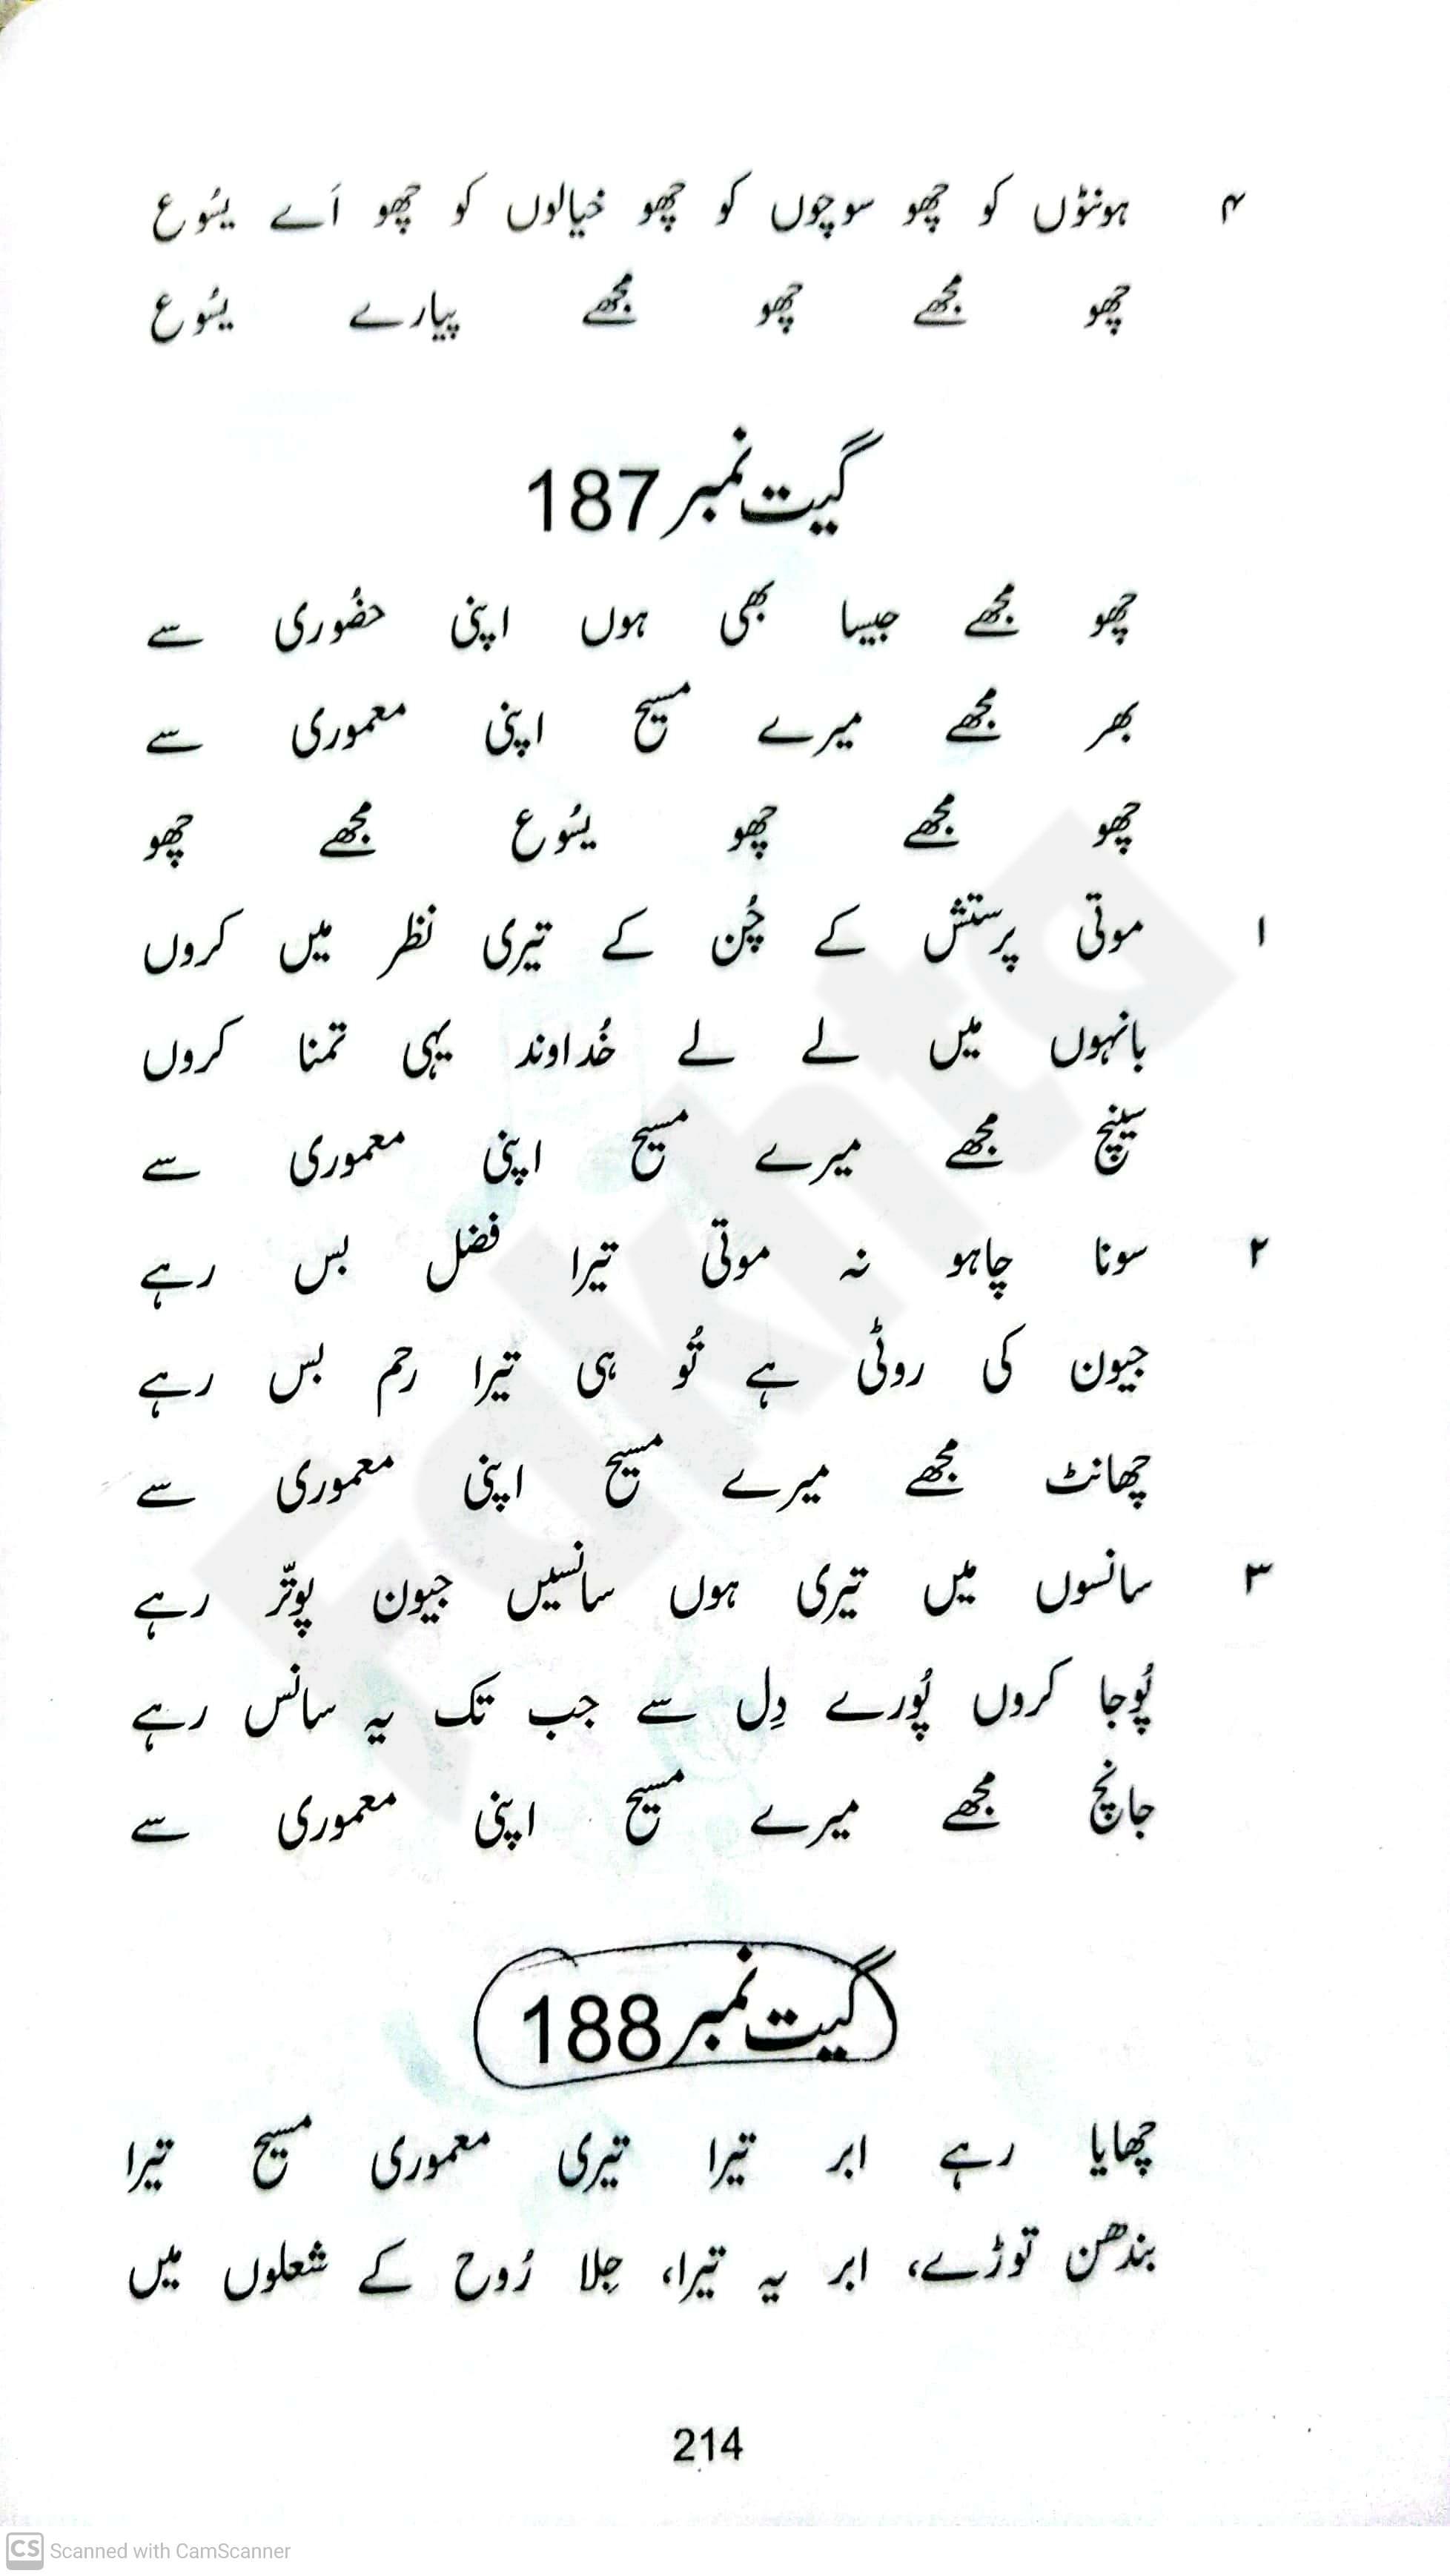 ۴ ہونٹوں کو چھو سوچوں کو چھو خیالوں کو چھو اَے یسُوع
چھو مجھے چھو مجھے پیارے یسُوع
گیت نمبر 187
چھو مجھے جیسا بھی ہوں اپنی حضُوری سے
بھر مجھے میرے مسیح اپنی معموری سے
چھو مجھے چھو یسُوع مجھے چھو
۱ موتی پرستش کے چُن کے تیری نظر میں کروں
بانہوں میں لے لے خُداوند یہی تمنا کروں
سینچ مجھے میرے مسیح اپنی معموری سے
۲ سونا چاہو نہ موتی تیرا فضل بس رہے
جیون کی روٹی ہے تُو ہی تیرا رحم بس رہے
چھانٹ مجھے میرے مسیح اپنی معموری سے
۳ سانسوں میں تیری ہوں سانسیں جیون پوتّر رہے
پُوجا کروں پُورے دِل سے جب تک یہ سانس رہے
جانچ مجھے میرے مسیح اپنی معموری سے
گیت نمبر 188
چھایا رہے ابر تیرا تیری معموری مسیح تیرا
بندھن توڑے، ابر یہ تیرا، جِلا رُوح کے شعلوں میں
214
Fakhta
CS Scanned with CamScanner